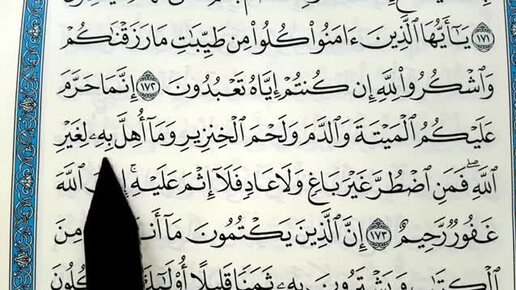 ﴿١٧١﴾ يَـٰٓأَيُّهَا ٱلَّذِينَ ءَامَنُوا۟ كُلُوا۟ مِن طَيِّبَـٰتِ مَا رَزَقْنَـٰكُمْ
وَٱشْكُرُوا۟ لِلَّهِ إِن كُنتُمْ إِيَّاهُ تَعْبُدُونَ ﴿١٧٢﴾ إِنَّمَا حَرَّمَ
عَلَيْكُمُ ٱلْمَيْتَةَ وَٱلدَّمَ وَلَحْمَ ٱلْخِنزِيرِ وَمَآ أُهِلَّ بِهِۦ لِغَيْرِ
ٱللَّهِۖ فَمَنِ ٱضْطُرَّ غَيْرَ بَاغٍ وَلَا عَادٍ فَلَآ إِثْمَ عَلَيْهِۚ ٱللَّهَ
غَفُورٌ رَّحِيمٌ ﴿١٧٣﴾ إِنَّ ٱلَّذِينَ يَكْتُمُونَ مَآ مِنَ
ثَمَنًا قَلِيلًا